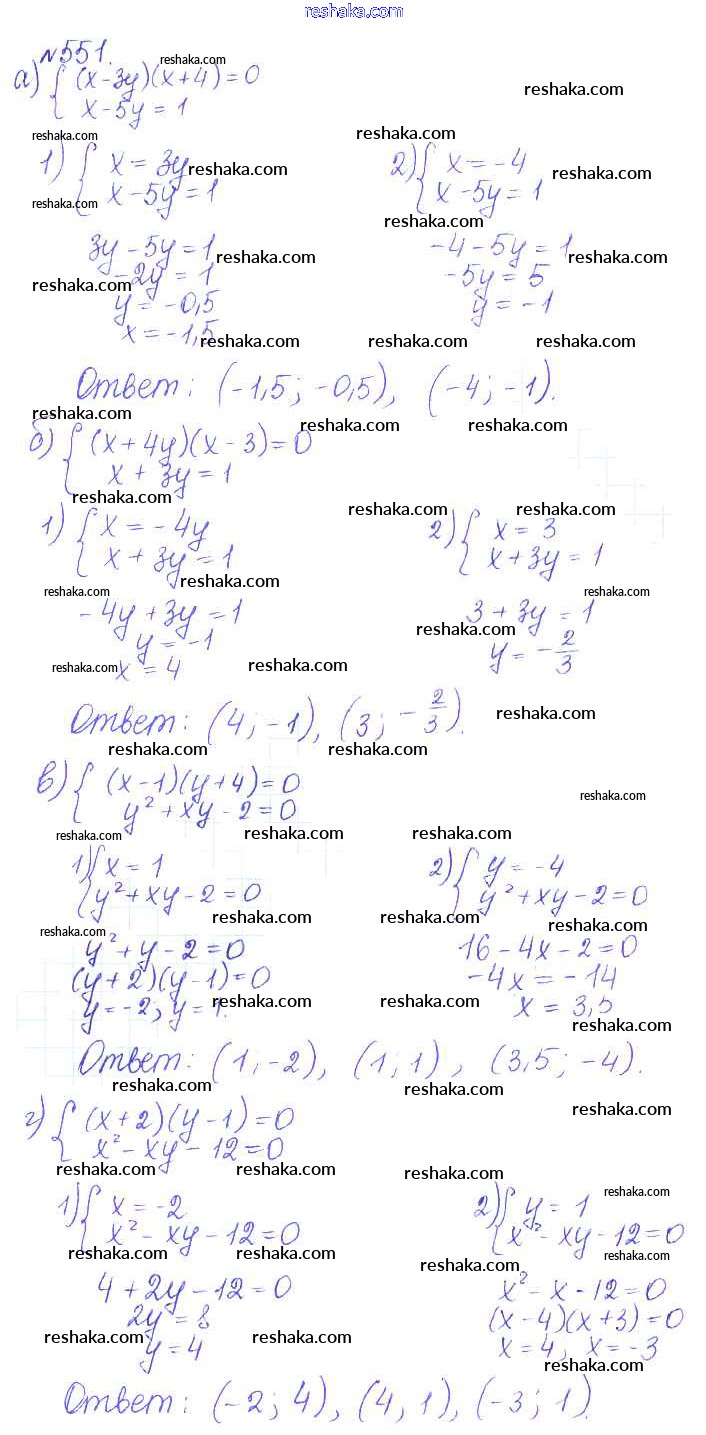 reshaka.com
№551. reshaka.com
а) { (x-3y)(x+4)=0 reshaka.com
x-5y=1
reshaka.com reshaka.com
1) { x=3y reshaka.com 2) { x=-4 reshaka.com
reshaka.com x-5y=1 x-5y=1
reshaka.com
3y-5y=1 reshaka.com -4-5y=1 reshaka.com
reshaka.com -2y=1 -5y=5
y=-0,5 reshaka.com y=-1
x=-1,5
reshaka.com reshaka.com reshaka.com
Ответ: (-1,5; -0,5), (-4; -1).
reshaka.com reshaka.com reshaka.com
б) { (x+4y)(x-3)=0
x+3y=1
reshaka.com
1) { x=-4y reshaka.com 2) { x=3 reshaka.com
x+3y=1 x+3y=1
reshaka.com
reshaka.com reshaka.com
-4y+3y=1 3+3y=1
y=-1 reshaka.com y=-2/3
reshaka.com x=4 reshaka.com
Ответ: (4; -1), (3; -2/3). reshaka.com
reshaka.com reshaka.com
в) { (x-1)(y+4)=0 reshaka.com
y²+xy-2=0
reshaka.com reshaka.com reshaka.com
1) { x=1 2) { y=-4
y²+xy-2=0 y²+xy-2=0
reshaka.com reshaka.com reshaka.com
reshaka.com y²+y-2=0 16-4x-2=0
(y+2)(y-1)=0 -4x=-14
y=-2; y=1. reshaka.com reshaka.com x=3,5
reshaka.com
Ответ: (1; -2), (1; 1), (3,5; -4).
reshaka.com reshaka.com
reshaka.com
г) { (x+2)(y-1)=0
x²-xy-12=0
reshaka.com reshaka.com reshaka.com
1) { x=-2 2) { y=1 reshaka.com
x²-xy-12=0 x²-xy-12=0
reshaka.com reshaka.com reshaka.com
reshaka.com
4+2y-12=0 x²-x-12=0
2y=8 (x-4)(x+3)=0
reshaka.com y=4 reshaka.com x=4, x=-3
reshaka.com
Ответ: (-2; 4), (4, 1), (-3; 1).